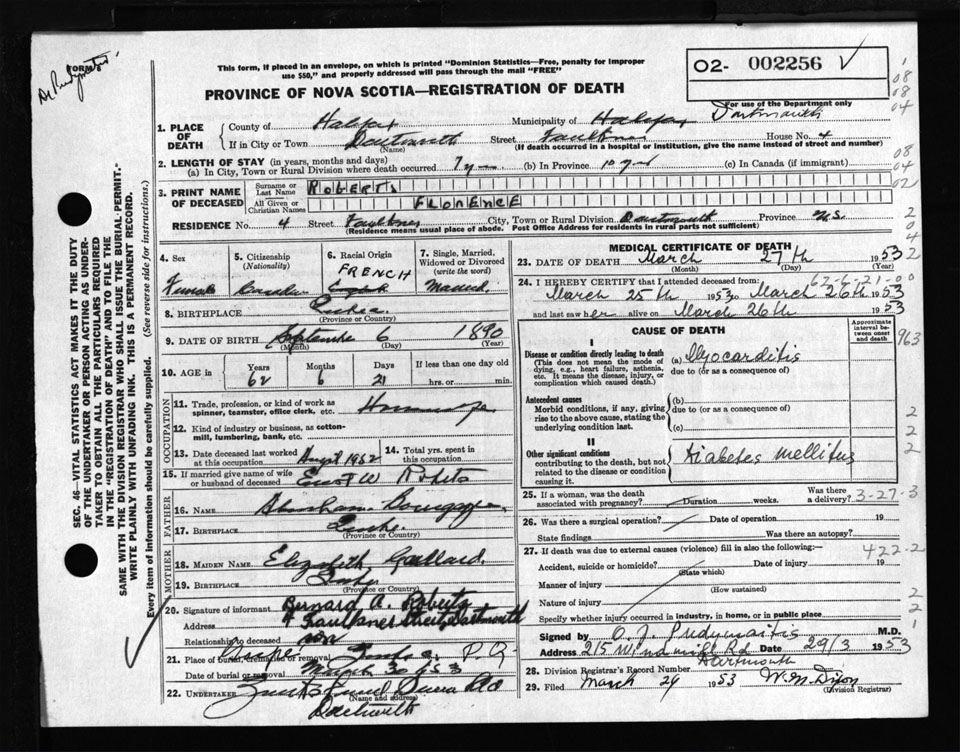 FORM
Dr. Pudymaitis
This form, if placed in an envelope, on which is printed "Dominion Statistics—Free, penalty for improper
use $50," and properly addressed will pass through the mail "FREE"
PROVINCE OF NOVA SCOTIA—REGISTRATION OF DEATH
02- 002256
For use of the Department only
1. PLACE OF DEATH
County of Halifax Municipality of Halifax Dartmouth
If in City or Town Dartmouth Street Faulkner House No. 4
(Name) (If death occurred in a hospital or institution, give the name instead of street and number)
2. LENGTH OF STAY (in years, months and days)
(a) In City, Town or Rural Division where death occurred 7 yrs (b) In Province 10 yrs (c) In Canada (if immigrant)
3. PRINT NAME OF DECEASED
Surname or Last Name ROBERTS
All Given or Christian Names FLORENCE
RESIDENCE No. 4 Street Faulkner City, Town or Rural Division Dartmouth Province N.S.
(Residence means usual place of abode. Post Office Address for residents in rural parts not sufficient)
4. Sex Female
5. Citizenship (Nationality) Canadian
6. Racial Origin FRENCH English
7. Single, Married, Widowed or Divorced (write the word) Married
8. BIRTHPLACE Quebec
(Province or Country)
9. DATE OF BIRTH September 6 1890
(Month) (Day) (Year)
10. AGE in Years 62 Months 6 Days 21 If less than one day hrs. or min.
OCCUPATION
11. Trade, profession, or kind of work as spinner, teamster, office clerk, etc. Housewife
12. Kind of industry or business, as cotton-mill, lumbering, bank, etc.
13. Date deceased last worked at this occupation August 1952
14. Total yrs. spent in this occupation
15. If married give name of wife or husband of deceased Ernest W Roberts
FATHER
16. NAME Abraham
17. BIRTHPLACE Quebec
(Province or Country)
MOTHER
18. MAIDEN NAME Elizabeth Gallard
19. BIRTHPLACE Quebec
(Province or Country)
20. Signature of informant Bernard A. Roberts
Address 4 Faulkner Street, Dartmouth
Relationship to deceased son
21. Place of burial, cremation or removal P.Q.
Date of burial or removal March 30 1953
22. UNDERTAKER Funeral Service
(Name and address)
Dartmouth
MEDICAL CERTIFICATE OF DEATH
23. DATE OF DEATH March 27th 1953
(Month) (Day) (Year)
24. I HEREBY CERTIFY that I attended deceased from:
March 25th 1953 to March 26th 1953
and last saw her alive on March 26th 1953
CAUSE OF DEATH
Approximate interval between onset and death
I
Disease or condition directly leading to death (a) Myocarditis
(This does not mean the mode of dying, e.g., heart failure, asthenia, etc. It means the disease, injury, or complication which caused death.)
due to (or as a consequence of)
Antecedent causes
Morbid conditions, if any, giving rise to the above cause, stating the underlying condition last.
(b)
due to (or as a consequence of)
(c)
II
Other significant conditions
contributing to the death, but not related to the disease or condition causing it.
Diabetes mellitus
25. If a woman, was the death associated with pregnancy? Duration weeks. Was there a delivery?
3-27-3
26. Was there a surgical operation? Date of operation 19
State findings Was there an autopsy?
27. If death was due to external causes (violence) fill in also the following:—
422-2
Accident, suicide or homicide? Date of injury 19
(State which)
Manner of injury
(How sustained)
Nature of injury
Specify whether injury occurred in industry, in home, or in public place
Signed by O. J. Pudymaitis M.D.
Address 215 Windmill Rd Date 29/3 1953
Dartmouth
28. Division Registrar's Record Number
29. Filed March 29 1953 W. M. Dixon
(Division Registrar)
963
SEC. 46—VITAL STATISTICS ACT MAKES IT THE DUTY
OF THE UNDERTAKER OR PERSON ACTING AS UNDER-
TAKER TO OBTAIN ALL THE PARTICULARS REQUIRED
IN THE "REGISTRATION OF DEATH" AND TO FILE THE
SAME WITH THE DIVISION REGISTRAR WHO SHALL ISSUE THE BURIAL PERMIT.
WRITE PLAINLY WITH UNFADING INK. THIS IS A PERMANENT RECORD.
Every item of information should be carefully supplied. (See reverse side for instructions.)